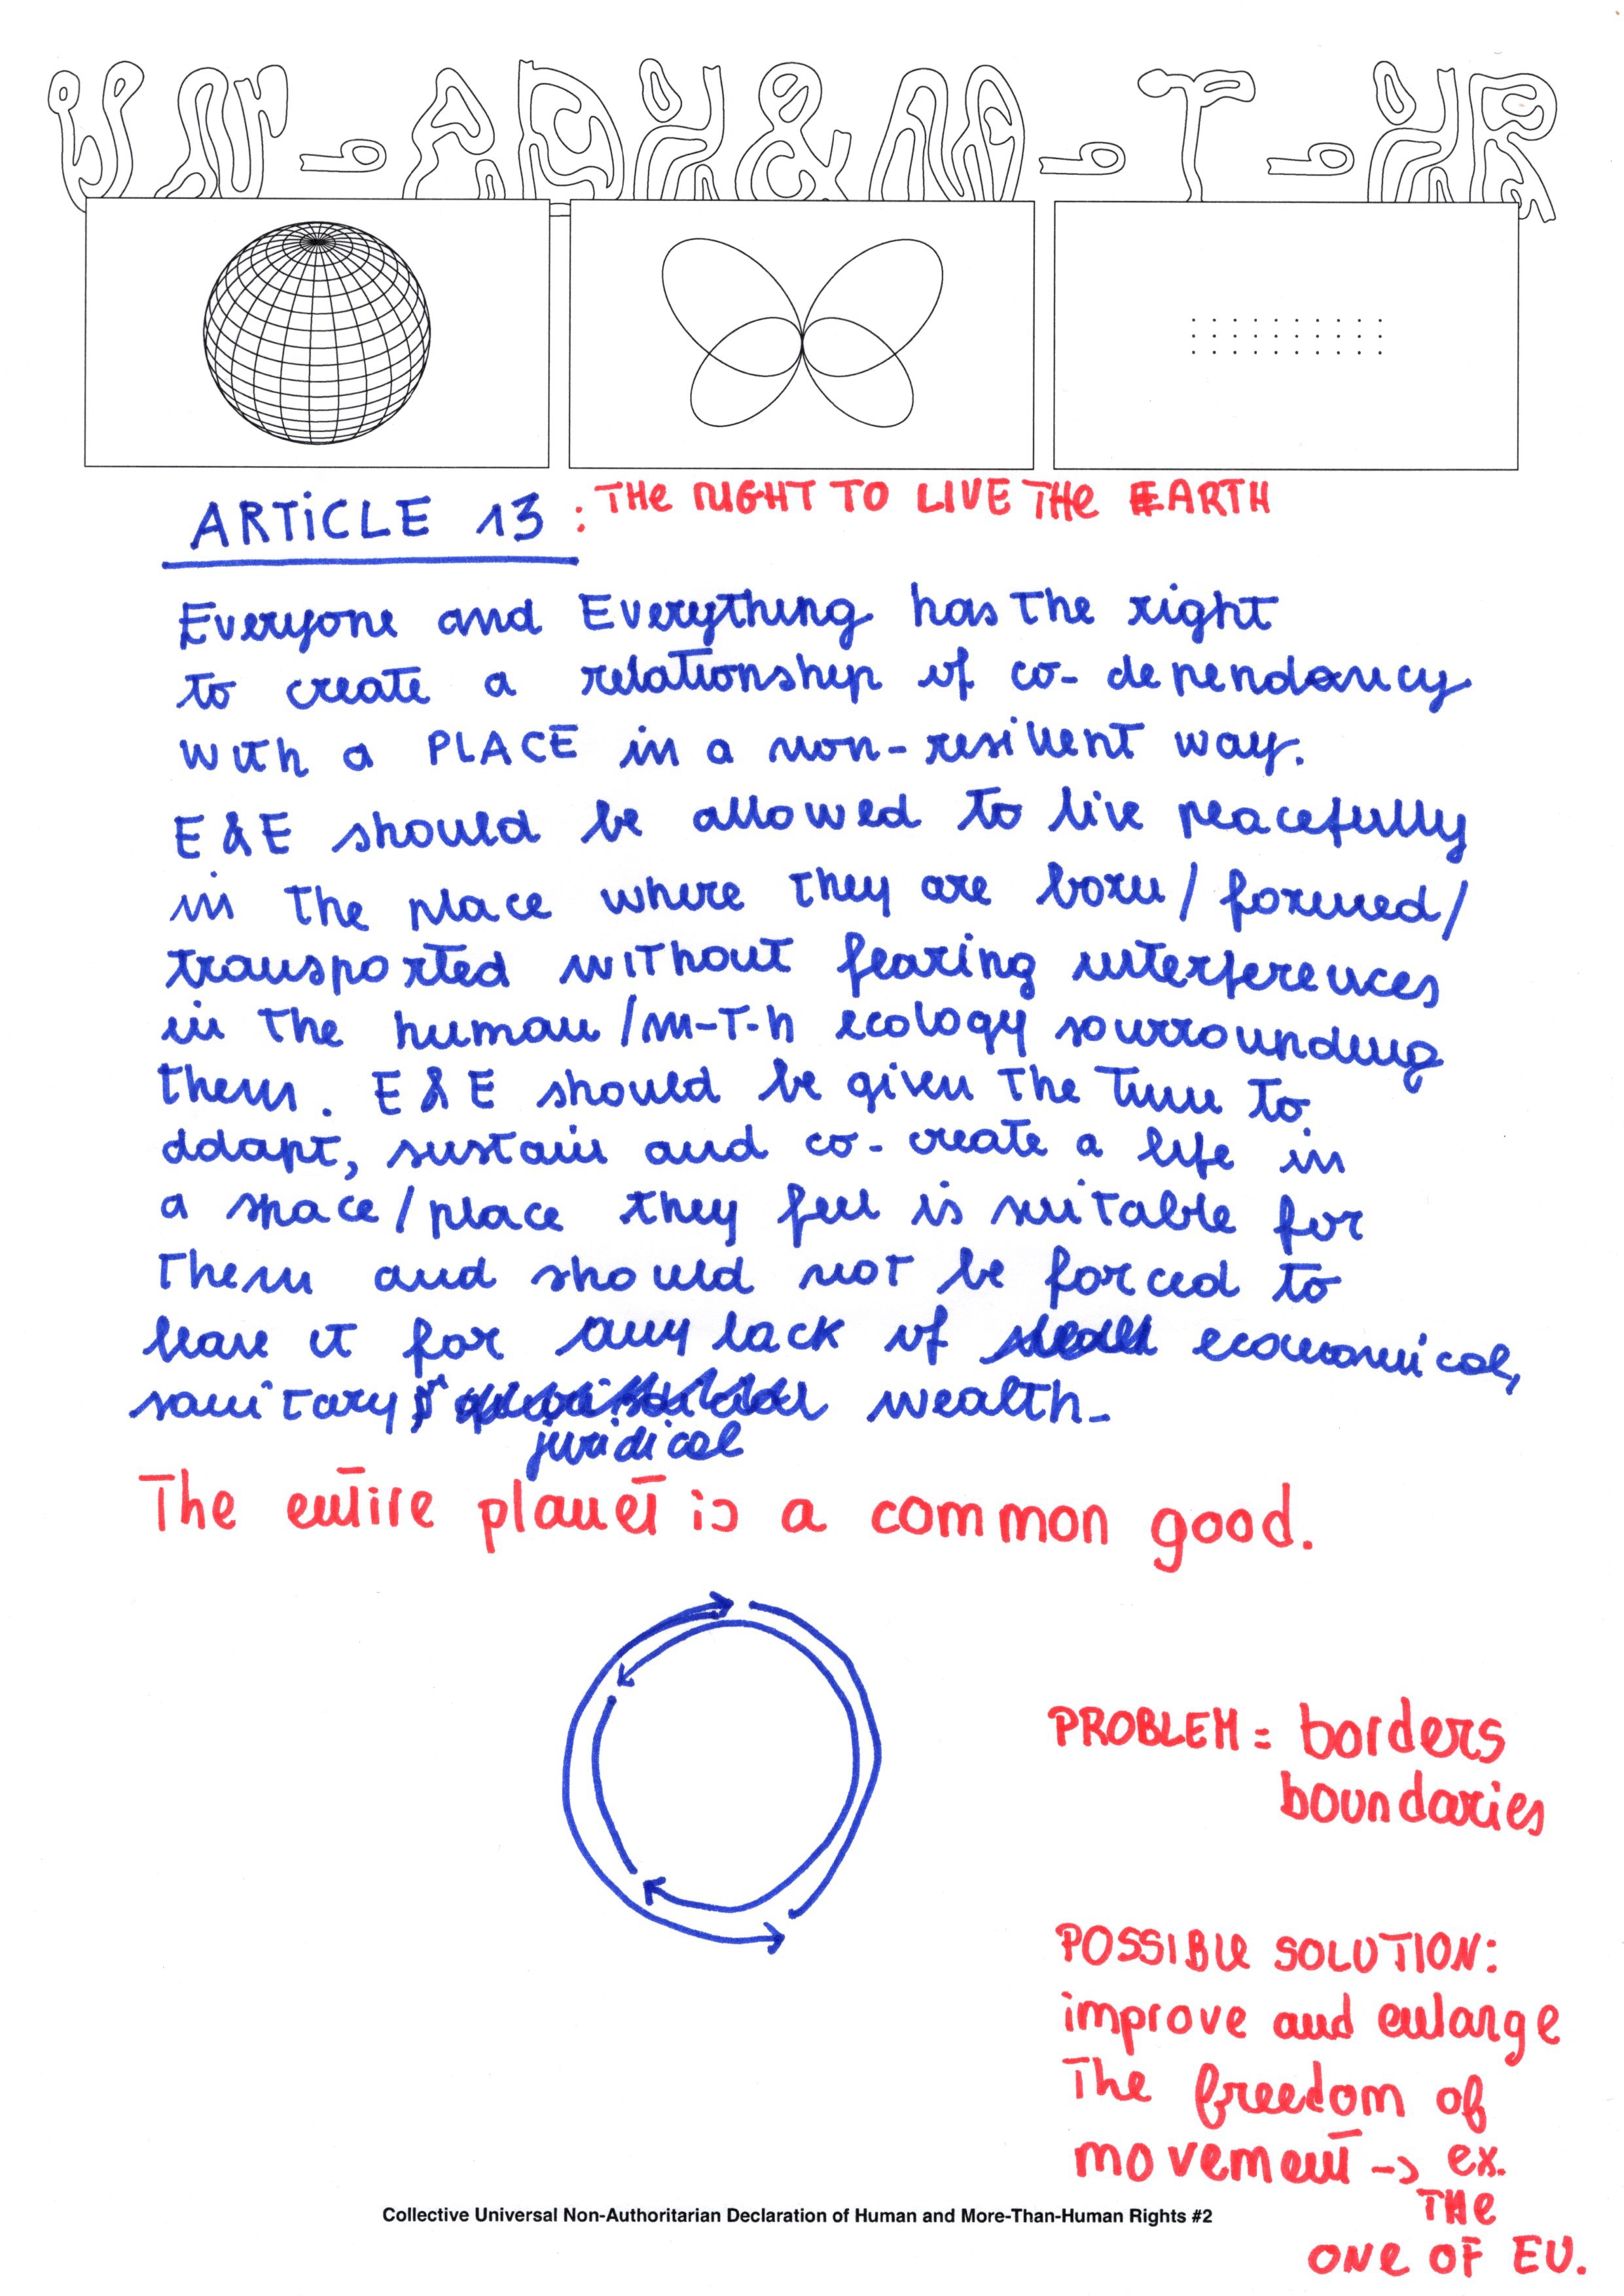 UN-ADH&M-T-HR
ARTiCLE 13 : THe RIGHT TO LIVE THe EARTH
Everyone and Everything has the right
to create a relationship of co-dependancy
with a PLACE in a non-resilient way.
E&E should be allowed to live peacefully
in the place where they are born/formed/
transported without fearing interferences
in the human/m-T-h ecology sourrounding
them. E&E should be given the time to
adapt, sustain and co-create a life in
a space/place they feel is suitable for
them and should not be forced to
leave it for any lack of economical,
sanitary, wealth.
juridical
The entire planet is a common good.
PROBLEM = borders
boundaries
POSSIBLe SOLUTION:
improve and enlarge
The freedom of
movement -> ex.
THe
ONe OF EU.
Collective Universal Non-Authoritarian Declaration of Human and More-Than-Human Rights #2